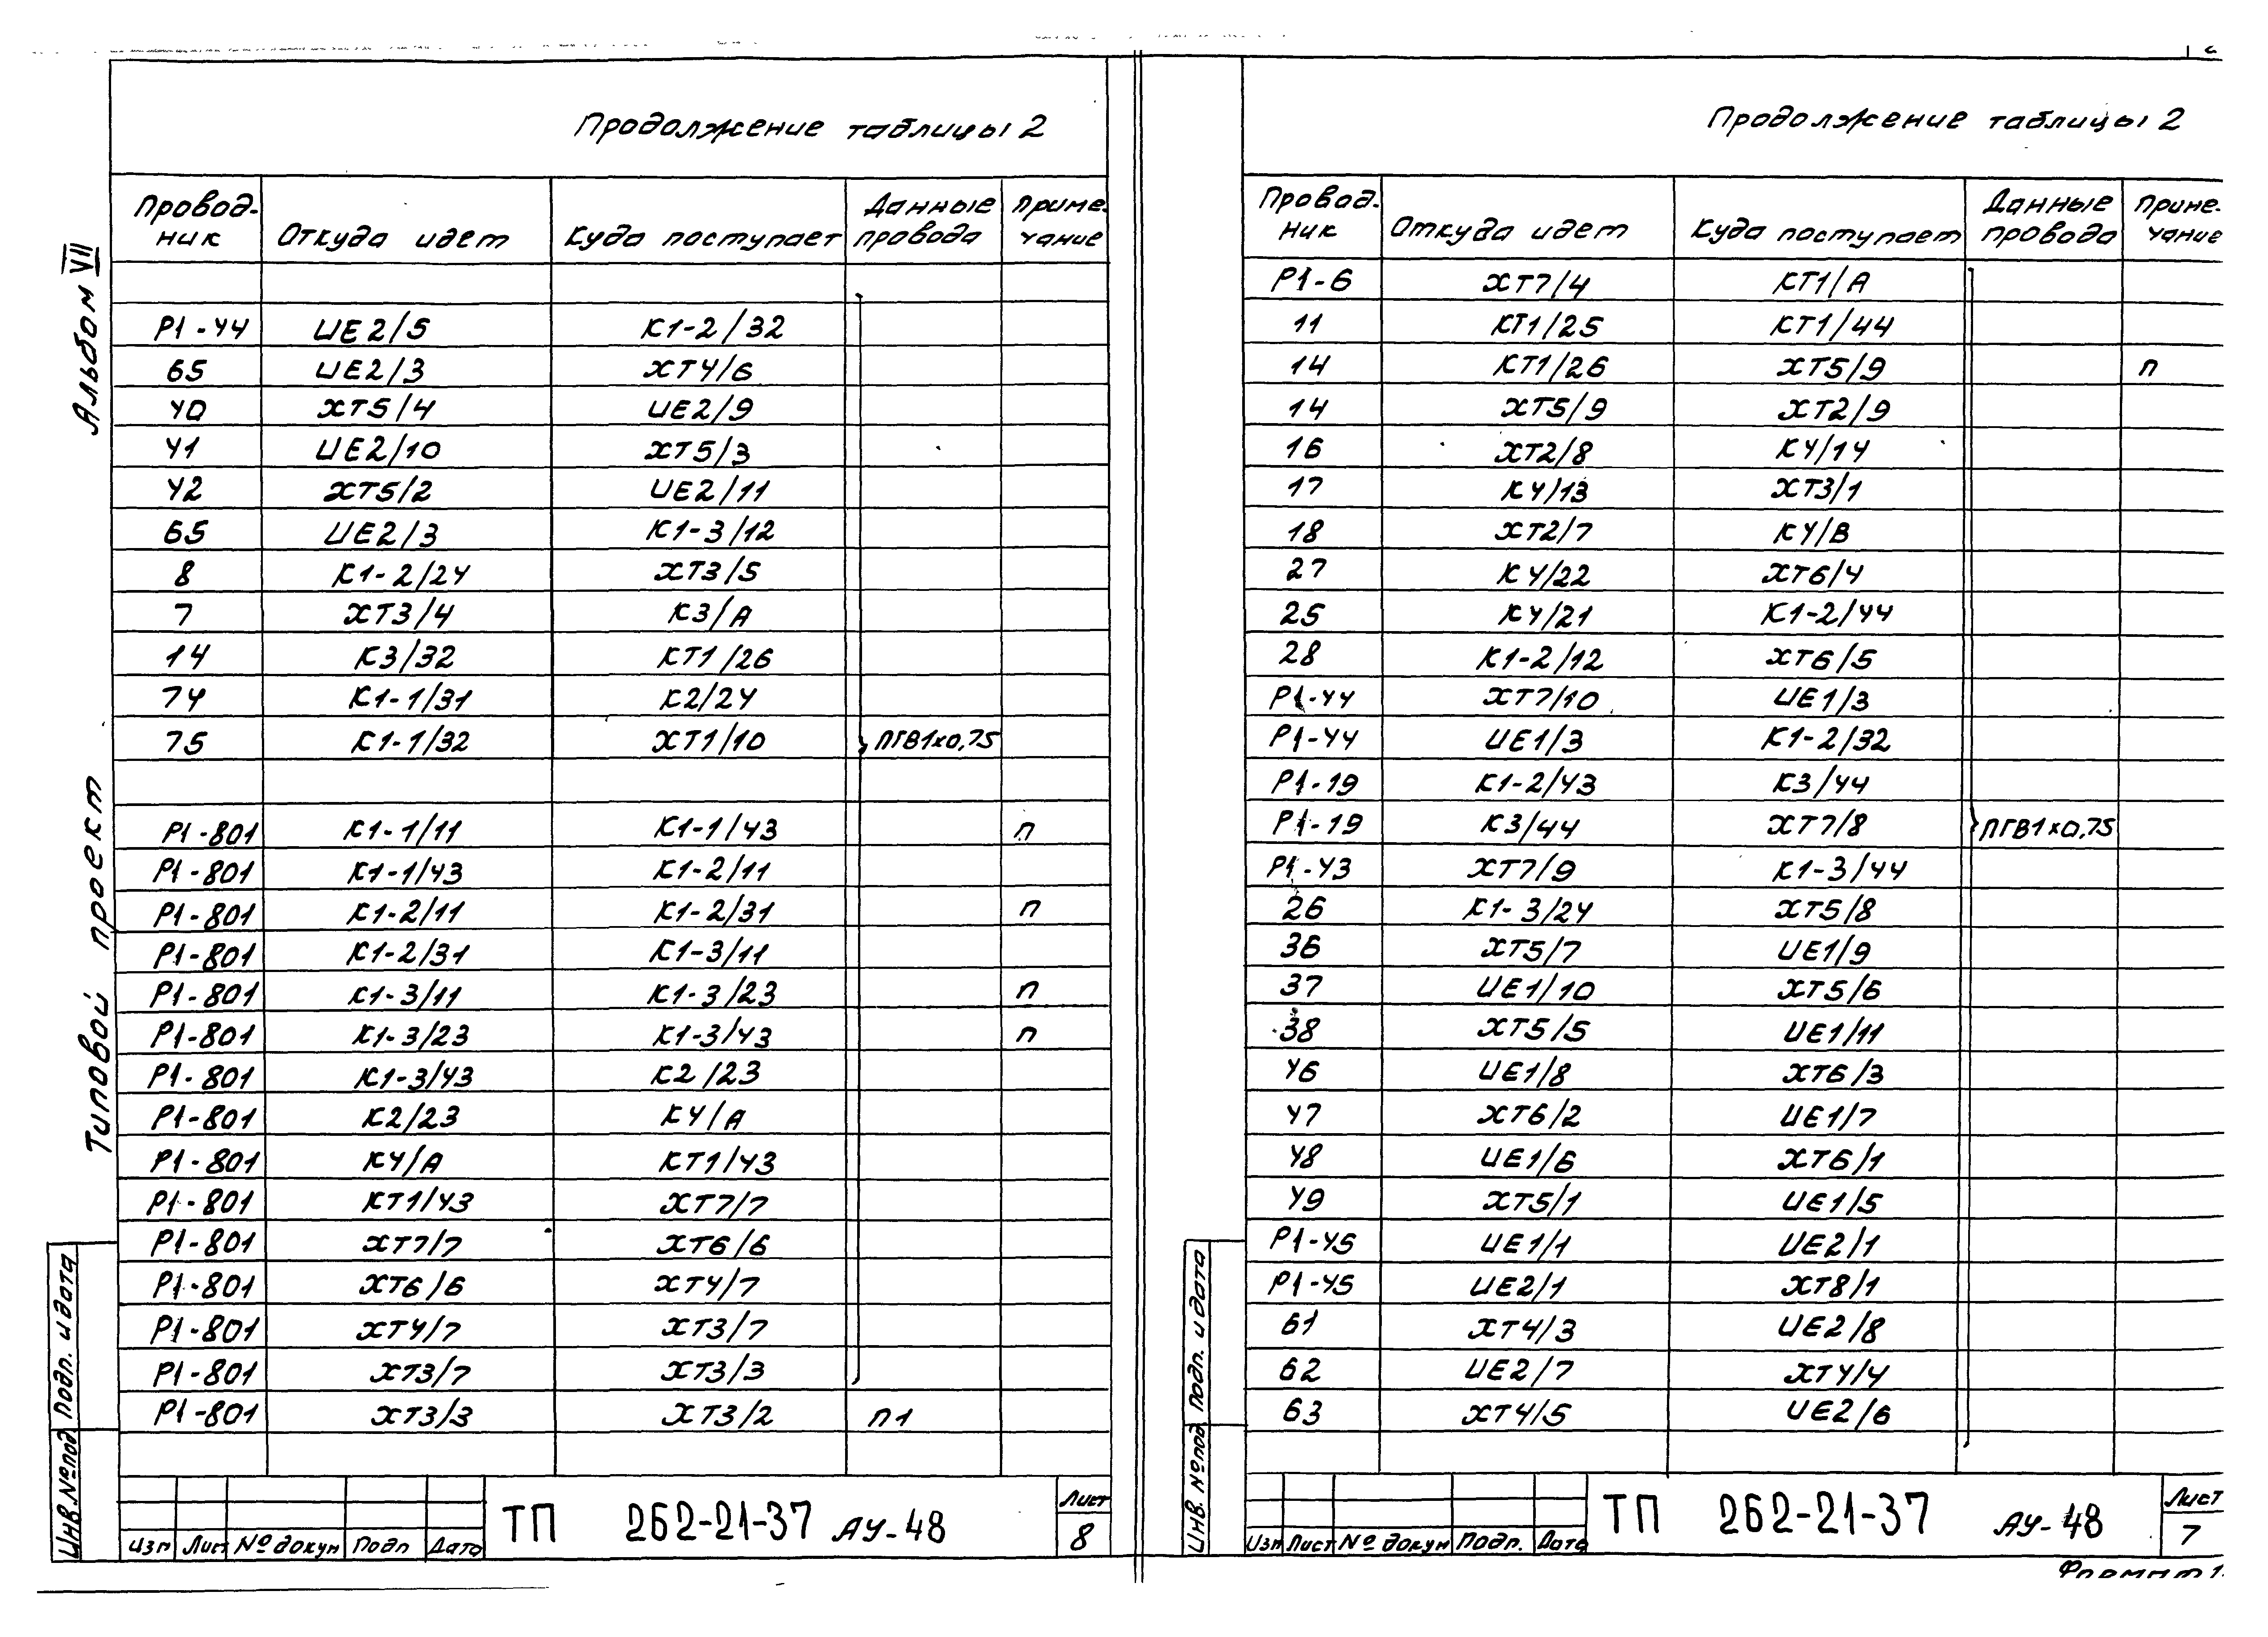 Продолжение таблицы 2
Провод-ник Откуда идет Куда поступает Данные провода Приме-чание
Р1-44 UE2/5 К1-2/32
65 UE2/3 ХТ4/6
40 ХТ5/4 UE2/9
41 UE2/10 ХТ5/3
42 ХТ5/2 UE2/11
65 UE2/3 К1-3/12
8 К1-2/24 ХТ3/5
7 ХТ3/4 К3/А
14 К3/32 КТ1/26
74 К1-1/31 К2/24
75 К1-1/32 ХТ1/10 ПГВ1х0,75
Р1-801 К1-1/11 К1-1/43 п
Р1-801 К1-1/43 К1-2/11
Р1-801 К1-2/11 К1-2/31 п
Р1-801 К1-2/31 К1-3/11
Р1-801 К1-3/11 К1-3/23 п
Р1-801 К1-3/23 К1-3/43 п
Р1-801 К1-3/43 К2/23
Р1-801 К2/23 К4/А
Р1-801 К4/А КТ1/43
Р1-801 КТ1/43 ХТ7/7
Р1-801 ХТ7/7 ХТ6/6
Р1-801 ХТ6/6 ХТ4/7
Р1-801 ХТ4/7 ХТ3/7
Р1-801 ХТ3/7 ХТ3/3
Р1-801 ХТ3/3 ХТ3/2 П1
Изм Лист № докум Подп Дата
ТП 262-21-37 АУ-48
Лист
8
Альбом VII
Типовой проект
Подп. и дата
Инв. № под
Продолжение таблицы 2
Провод-ник Откуда идет Куда поступает Данные провода Приме-чание
Р1-6 ХТ7/4 КТ1/А
11 КТ1/25 КТ1/44
14 КТ1/26 ХТ5/9 п
14 ХТ5/9 ХТ2/9
16 ХТ2/8 К4/14
17 К4/13 ХТ3/1
18 ХТ2/7 К4/В
27 К4/22 ХТ6/4
25 К4/21 К1-2/44
28 К1-2/12 ХТ6/5
Р1-44 ХТ7/10 UE1/3
Р1-44 UE1/3 К1-2/32
Р1-19 К1-2/43 К3/44
Р1-19 К3/44 ХТ7/8 ПГВ1х0,75
Р1-43 ХТ7/9 К1-3/44
26 К1-3/24 ХТ5/8
36 ХТ5/7 UE1/9
37 UE1/10 ХТ5/6
38 ХТ5/5 UE1/11
46 UE1/8 ХТ6/3
47 ХТ6/2 UE1/7
48 UE1/6 ХТ6/1
49 ХТ5/1 UE1/5
Р1-45 UE1/1 UE2/1
Р1-45 UE2/1 ХТ8/1
61 ХТ4/3 UE2/8
62 UE2/7 ХТ4/4
63 ХТ4/5 UE2/6
Изм Лист № докум Подп. Дата
ТП 262-21-37 АУ-48
Лист
7
Подп. и дата
Инв. № под